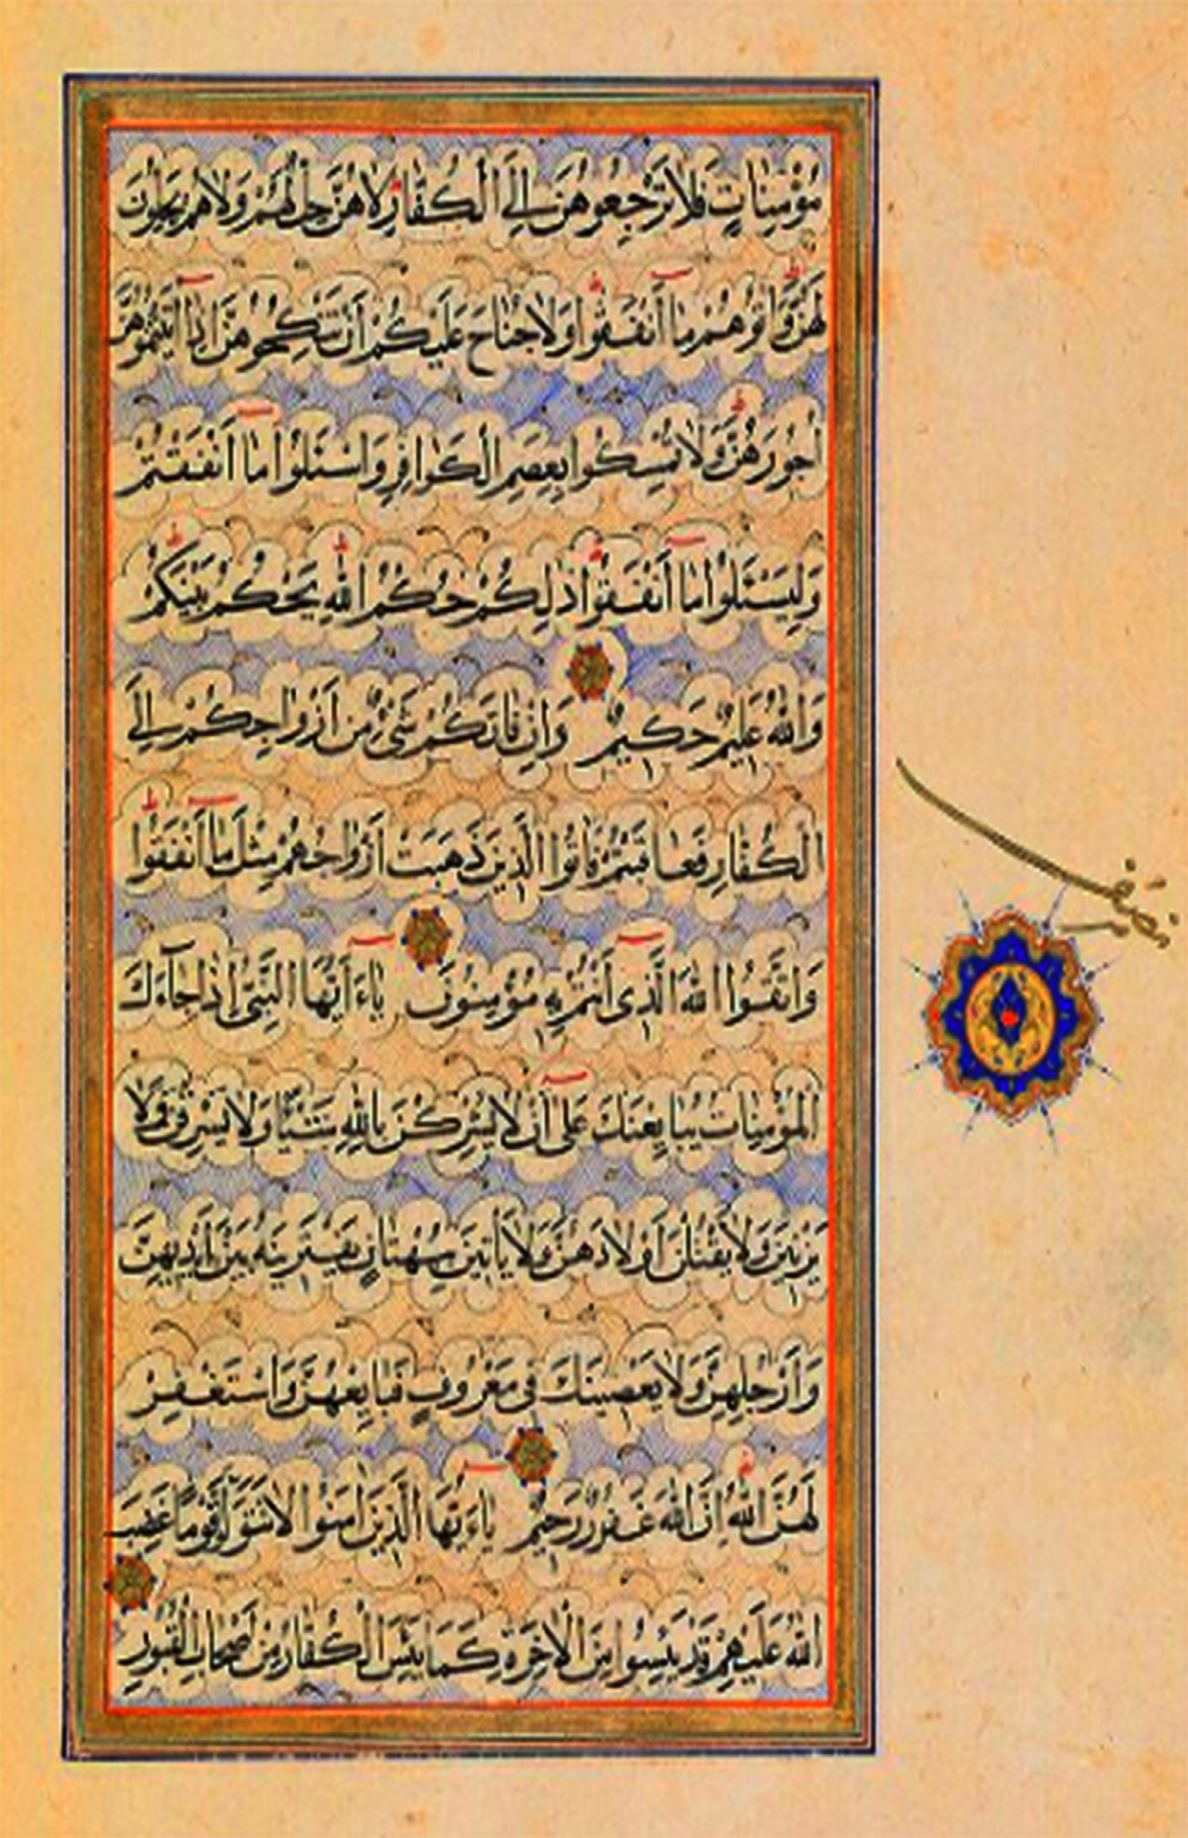 مُؤْمِنَاتٍ فَلَا تَرْجِعُوهُنَّ إِلَى الْكُفَّارِ لَا هُنَّ حِلٌّ لَهُمْ وَلَا هُمْ يَحِلُّونَ
لَهُنَّ وَآتُوهُمْ مَا أَنْفَقُوا وَلَا جُنَاحَ عَلَيْكُمْ أَنْ تَنْكِحُوهُنَّ إِذَا آتَيْتُمُوهُنَّ
أُجُورَهُنَّ وَلَا تُمْسِكُوا بِعِصَمِ الْكَوَافِرِ وَاسْئَلُوا مَا أَنْفَقْتُمْ
وَلْيَسْئَلُوا مَا أَنْفَقُوا ذَلِكُمْ حُكْمُ اللَّهِ يَحْكُمُ بَيْنَكُمْ
وَاللَّهُ عَلِيمٌ حَكِيمٌ وَإِنْ فَاتَكُمْ شَيْءٌ مِنْ أَزْوَاجِكُمْ إِلَى
الْكُفَّارِ فَعَاقَبْتُمْ فَآتُوا الَّذِينَ ذَهَبَتْ أَزْوَاجُهُمْ مِثْلَ مَا أَنْفَقُوا
وَاتَّقُوا اللَّهَ الَّذِي أَنْتُمْ بِهِ مُؤْمِنُونَ يَاءَ أَيُّهَا النَّبِيُّ إِذَا جَاءَكَ
الْمُؤْمِنَاتُ يُبَايِعْنَكَ عَلَى أَنْ لَا يُشْرِكْنَ بِاللَّهِ شَيْئًا وَلَا يَسْرِقْنَ وَلَا
يَزْنِينَ وَلَا يَقْتُلْنَ أَوْلَادَهُنَّ وَلَا يَأْتِينَ بِبُهْتَانٍ يَفْتَرِينَهُ بَيْنَ أَيْدِيهِنَّ
وَأَرْجُلِهِنَّ وَلَا يَعْصِينَكَ فِي مَعْرُوفٍ فَبَايِعْهُنَّ وَاسْتَغْفِرْ
لَهُنَّ اللَّهَ إِنَّ اللَّهَ غَفُورٌ رَحِيمٌ يَاءَيُّهَا الَّذِينَ آمَنُوا لَا تَتَوَلَّوْا قَوْمًا غَضِبَ
اللَّهُ عَلَيْهِمْ قَدْ يَئِسُوا مِنَ الْآخِرَةِ كَمَا يَئِسَ الْكُفَّارُ مِنْ أَصْحَابِ الْقُبُورِ
نصف